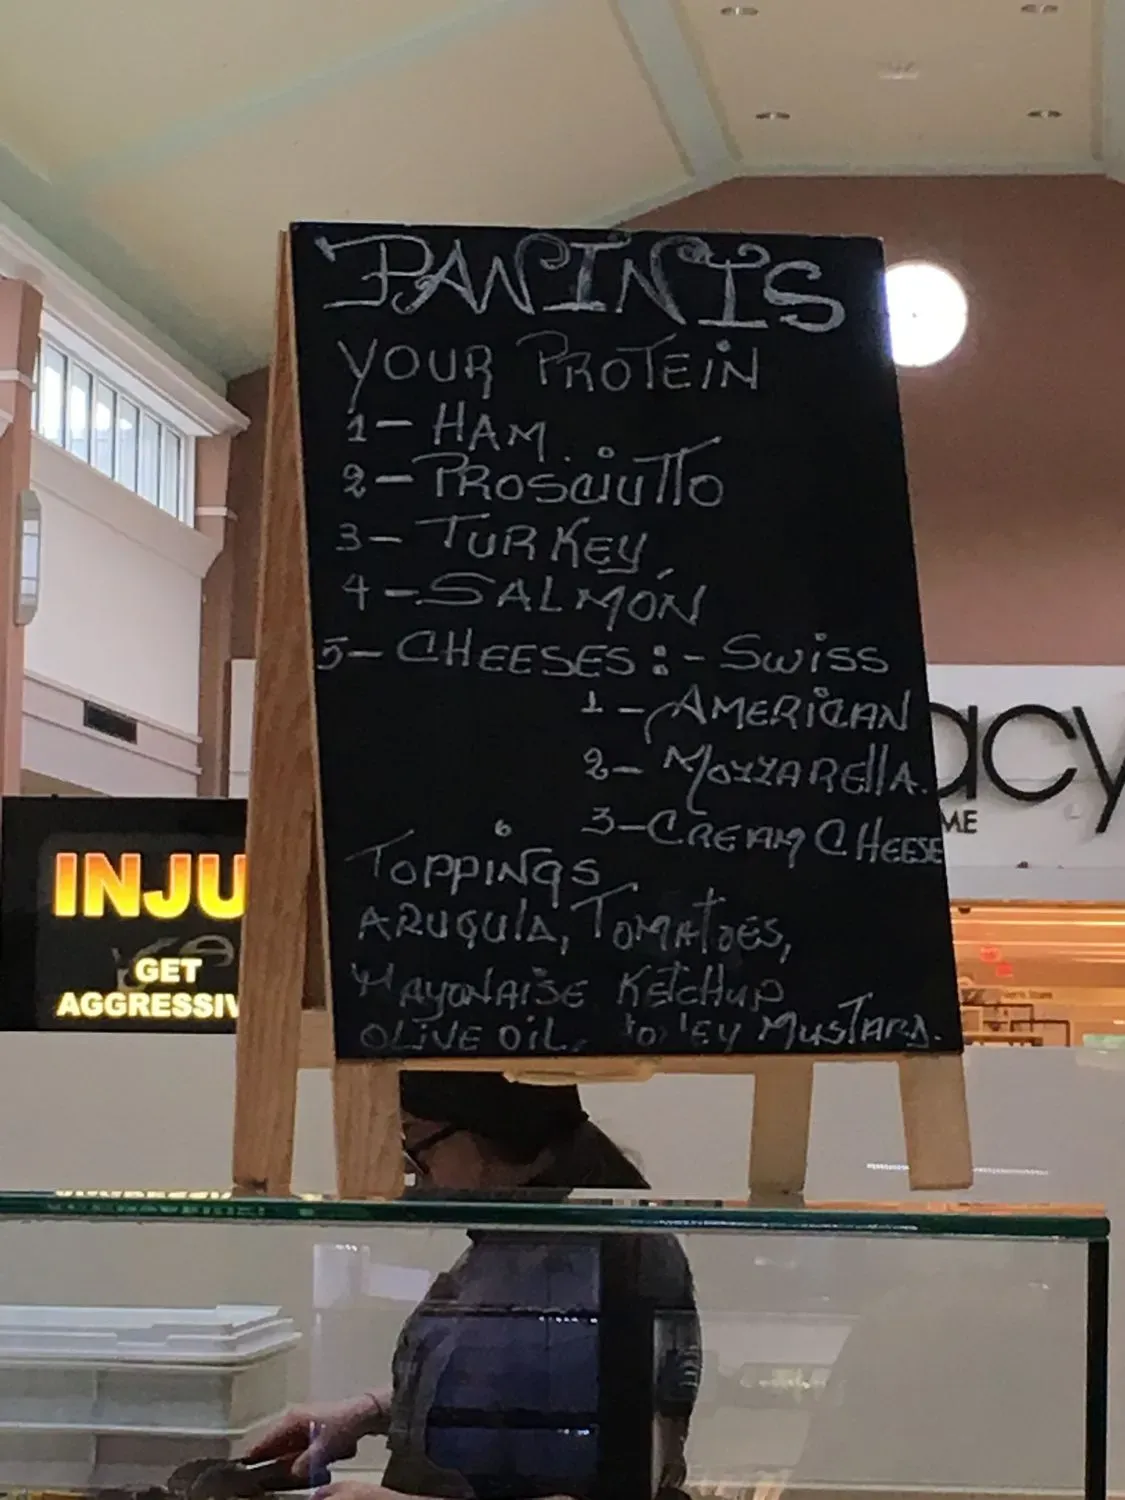 PANINIS
YOUR PROTEIN
1- HAM.
2- PROSCIUTTO
3- TURKEY
4- SALMON
5- CHEESES: - SWISS
1- AMERICAN
2- MOZZARELLA.
3- CREAM CHEESE
TOPPINGS
ARUGULA, TOMATOES,
MAYONAISE KETCHUP
OLIVE OIL, MUSTARD.
INJU
GET
AGGRESSIV
acy
ME